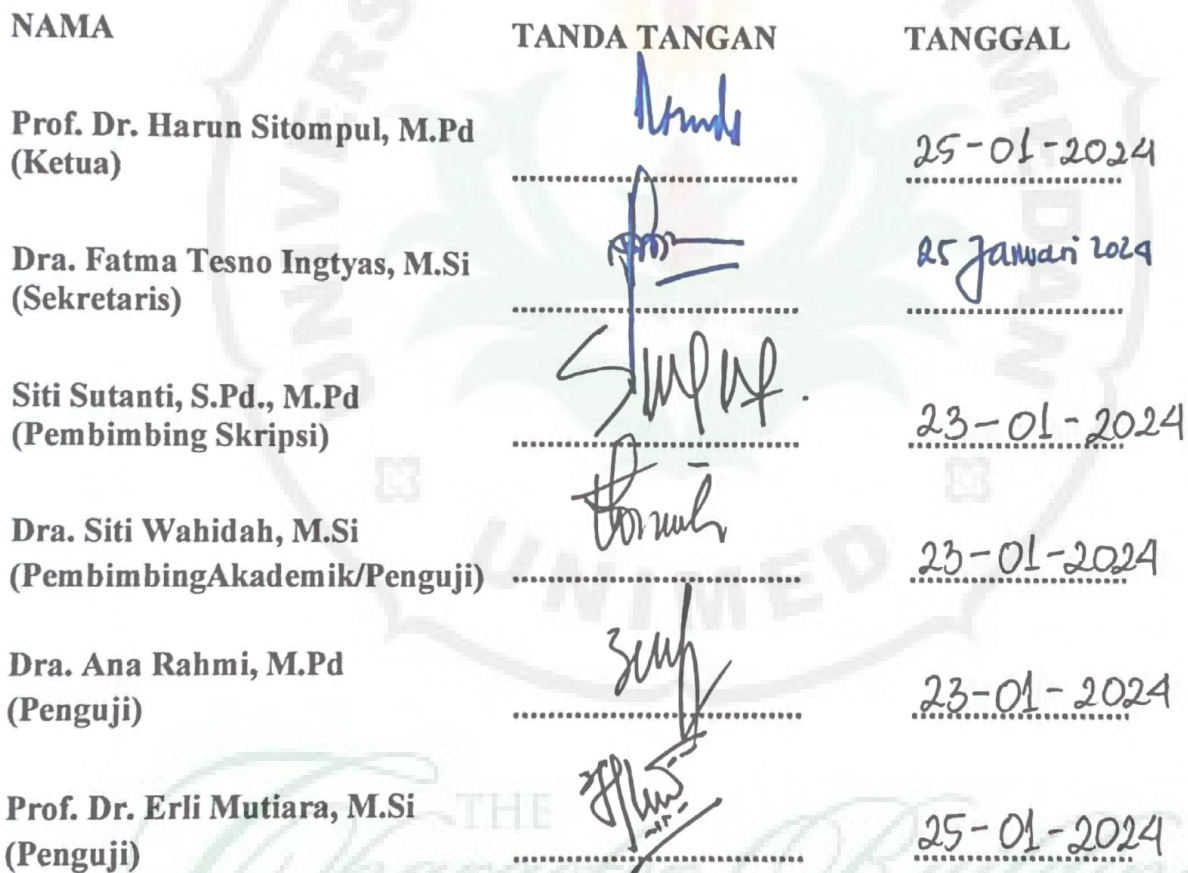 NAMA TANDA TANGAN TANGGAL
Prof. Dr. Harun Sitompul, M.Pd
(Ketua) 25-01-2024
Dra. Fatma Tesno Ingtyas, M.Si 25 Januari 2024
(Sekretaris)
Siti Sutanti, S.Pd., M.Pd
(Pembimbing Skripsi) 23-01-2024
Dra. Siti Wahidah, M.Si
(PembimbingAkademik/Penguji) 23-01-2024
Dra. Ana Rahmi, M.Pd
(Penguji) 23-01-2024
Prof. Dr. Erli Mutiara, M.Si
(Penguji) 25-01-2024
UNIMED
THE